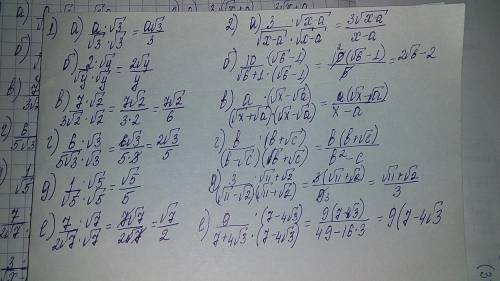 1) а) a·√3 / √3·√3 = a√3 / 3
б) 2·√y / √y·√y = 2√y / y
в) 7·√2 / 3√2·√2 = 7√2 / 3·2 = 7√2 / 6
г) 6·√3 / 5√3·√3 = 6√3 / 5·3 = 2√3 / 5
д) 1·√5 / √5·√5 = √5 / 5
е) 7·√7 / 2√7·√7 = 7√7 / 2·7 = √7 / 2
2) а) 3·√x-a / √x-a·√x-a = 3√x-a / x-a
б) 10·(√6-1) / √6+1·(√6-1) = 10(√6-1) / 5 = 2√6-2
в) a·(√x-√a) / (√x+√a)(√x-√a) = a(√x-√a) / x-a
г) b·(b+√c) / (b-√c)(b+√c) = b(b+√c) / b²-c
д) 3·(√11+√2) / (√11-√2)(√11+√2) = 3(√11+√2) / 9 3 = √11+√2 / 3
е) 9·(7-4√3) / 7+4√3·(7-4√3) = 9(7-4√3) / 49-16·3 = 9(7-4√3